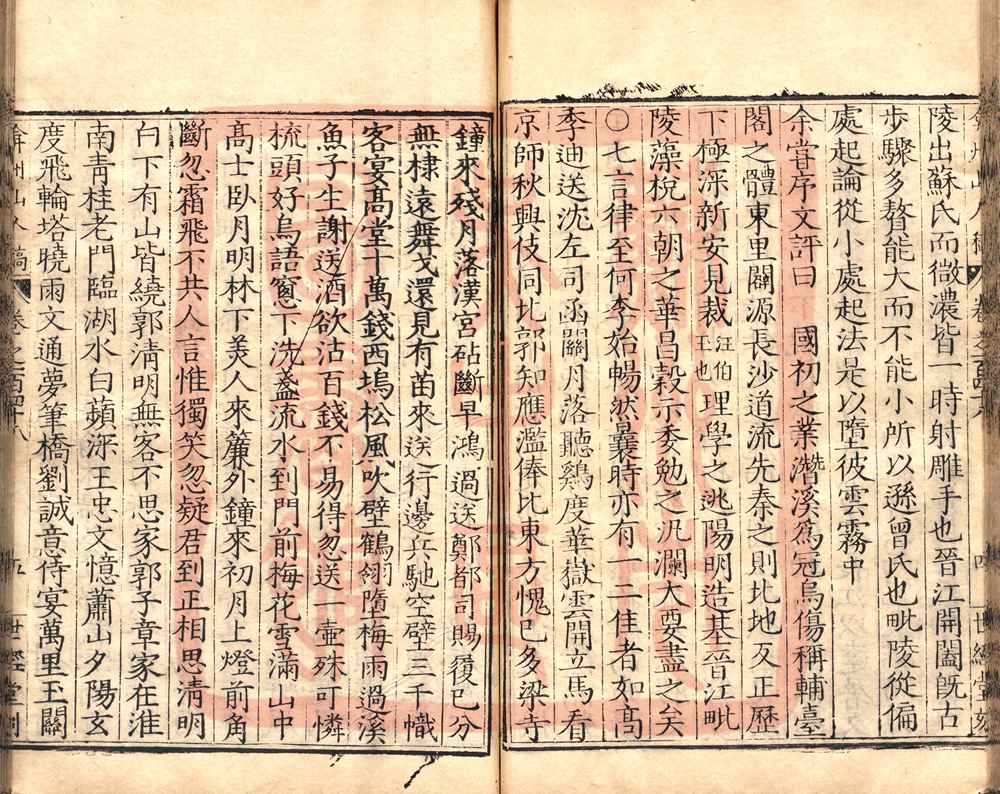 陵出蘇氏而微濃皆一時射雕手也晉江開闔旣古
歩驟多贅能大而不能小所以遜曾氏也毗陵從偏
處起論從小處起法是以墮彼雲霧中
余嘗序文評曰　國初之業潛溪爲冠烏傷稱輔臺
閣之體東里闢源長沙道流先秦之則北地反正歷
下極深新安見裁汪伯玉也理學之逃陽明造基晉江毗
陵藻梲六朝之華昌穀示委勉之汎瀾大要盡之矣
○七言律至何李始暢然曩時亦有一二佳者如高
季迪送沈左司函關月落聽鷄度華嶽雲開立馬看
京師秋興伎同北郭知應濫俸比東方愧已多梁寺
鐘來殘月落漢宮砧斷早鴻過送鄭都司賜履已分
無棣遠舞戈還見有苗來送行邊兵馳空壁三千幟
客宴高堂十萬錢西塢松風吹壁鶴翎墮梅雨過溪
魚子生謝送酒欲沽百錢不易得忽送一壷殊可憐
梳頭好鳥語窓下洗盞流水到門前梅花雪滿山中
高士臥月明林下美人來簾外鐘來初月上燈前角
斷忽霜飛不共人言惟獨笑忽疑君到正相思清明
白下有山皆繞郭清明無客不思家郭子章家在淮
南青桂老門臨湖水白蘋深王忠文憶蕭山夕陽玄
度飛輪塔曉雨文通夢筆橋劉誠意侍宴萬里玉關
弇州山人稿　卷之一百四十八　五　世經堂刻